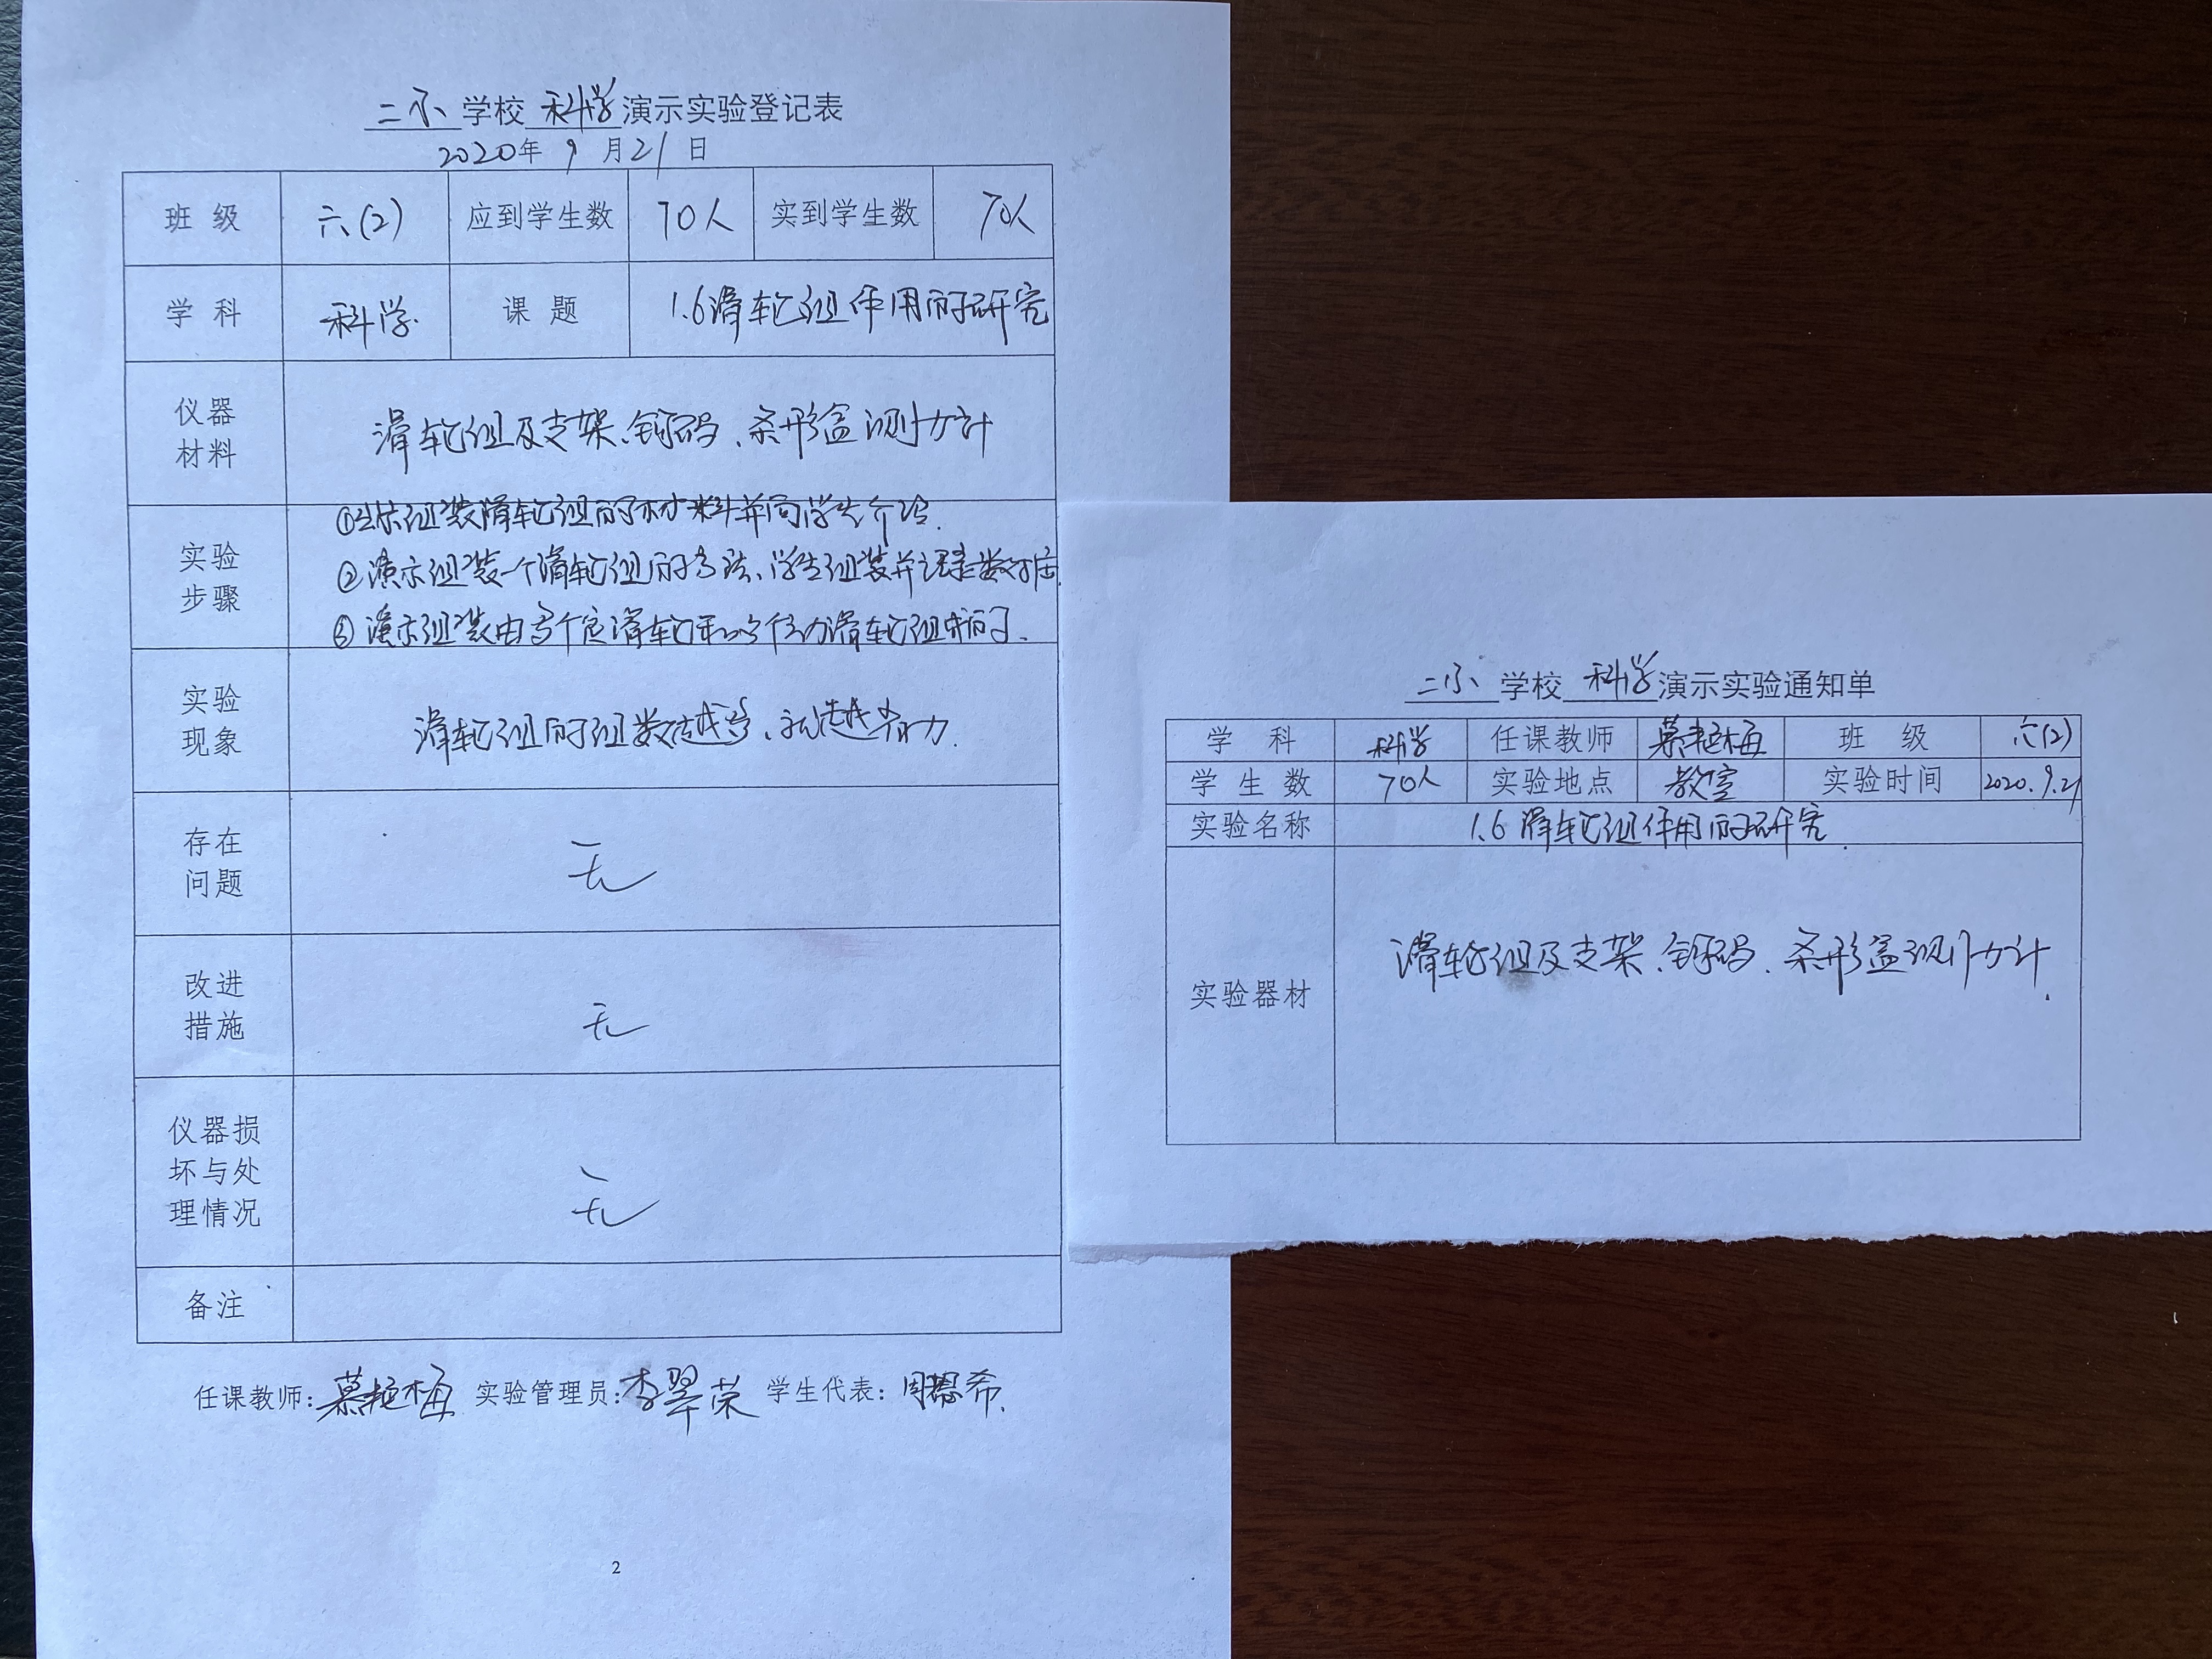 二小学校科学演示实验登记表
2020年9月21日
班级 六(2) 应到学生数 70人 实到学生数 70人
学科 科学 课题 1.6滑轮组作用的研究
仪器材料 滑轮组及支架、钩码、条形盒测力计
实验步骤 ①出示组装滑轮组的材料并向学生介绍.
②演示组装一个滑轮组的方法、学生组装并记录数据
③演示组装由多个定滑轮和多个动滑轮组成的.
实验现象 滑轮组的组数越多、就越省力.
存在问题 无
改进措施 无
仪器损坏与处理情况 无
备注
任课教师:慕艳梅 实验管理员:李翠荣 学生代表:周恩希.
2
二小学校科学演示实验通知单
学科 科学 任课教师 慕艳梅 班级 六(2)
学生数 70人 实验地点 教室 实验时间 2020.9.21
实验名称 1.6滑轮组作用的研究.
实验器材 滑轮组及支架、钩码、条形盒测力计.